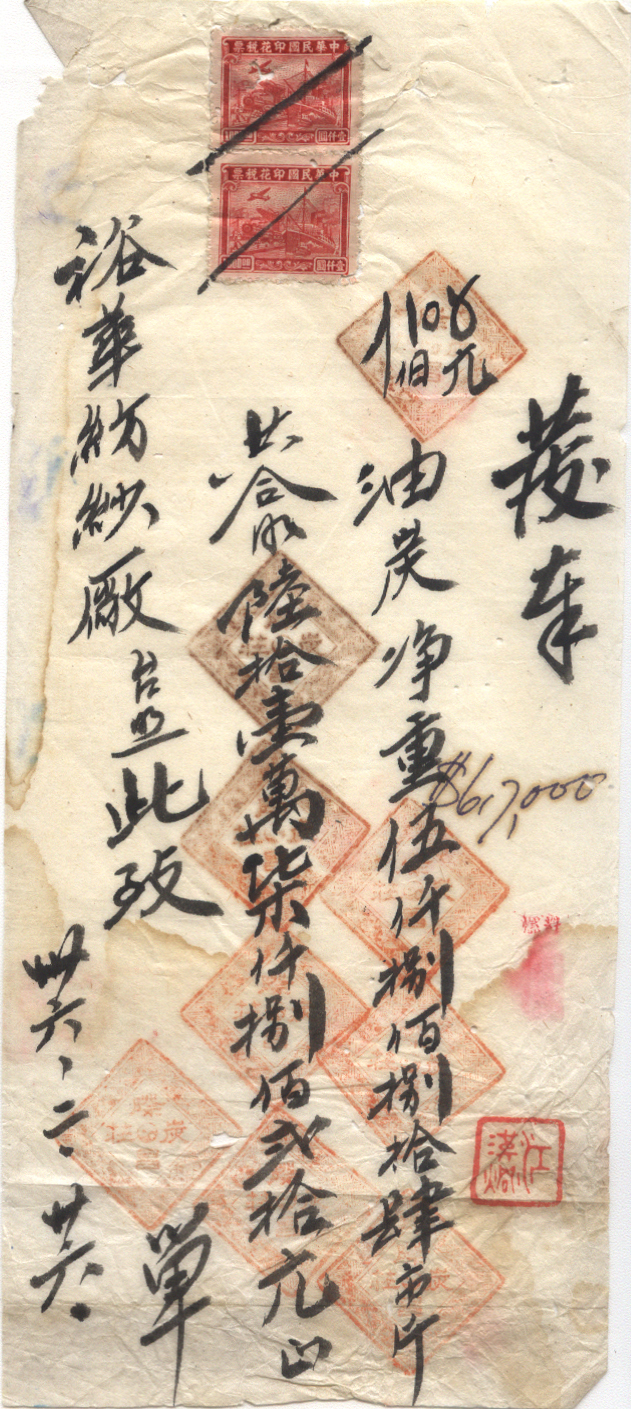 中華民國印花稅票
壹仟圓
中華民國印花稅票
壹仟圓
發奉
油炭净重伍仟捌佰捌拾肆市斤
$617,000
共合洋陸拾壹萬柒仟捌佰貳拾元正
裕華紡紗廠台照此致
單
卅六、二、廿六、